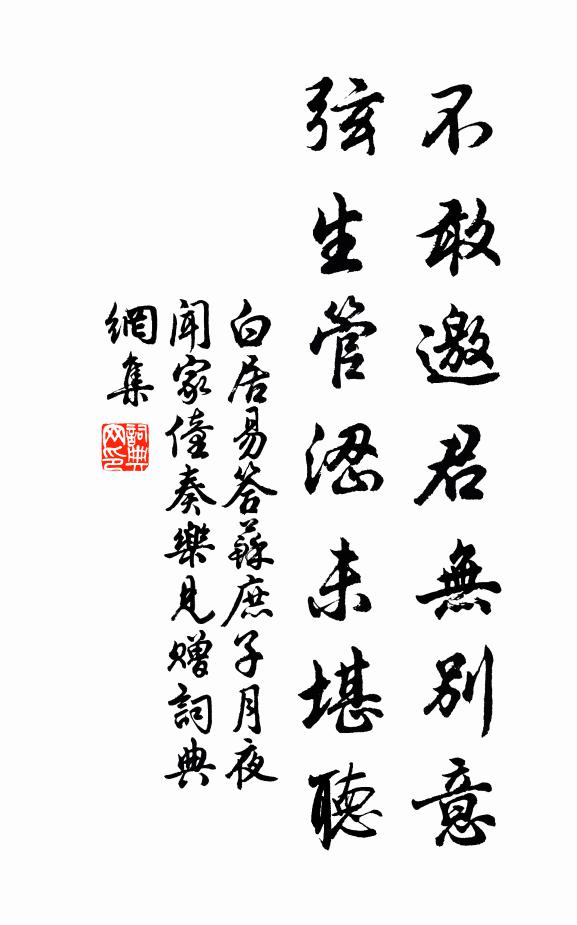 不敢邀君無別意
弦生管澀未堪聽
白居易答蘇庶子月夜
聞家僮奏樂見贈詞典
網集
詞典网印